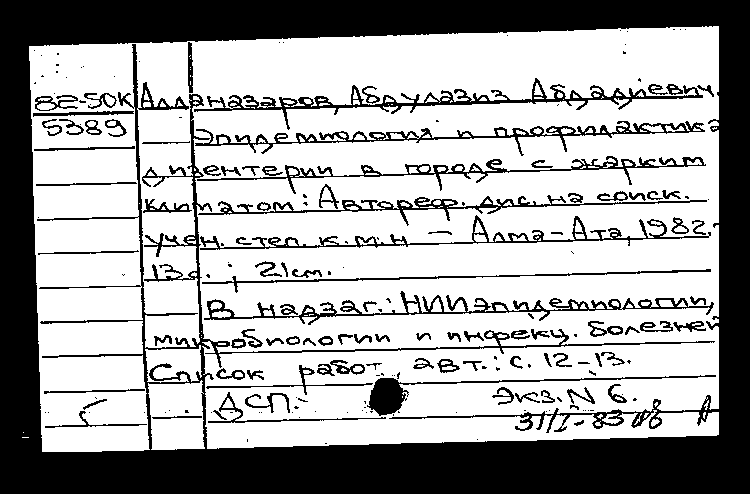 82-50К Алланазаров, Абдулазиз Абдадиевич.
5389 Эпидемиология и профилактика
дизентерии в городе с жарким
климатом: Автореф. дис. на соиск.
учен. степ. к.м.н – Алма-Ата, 1982.-
13с. ; 21см.
В надзаг.: НИИ эпидемиологии,
микробиологии и инфекц. болезней
Список работ авт.: с. 12-13.
ДСП. Экз. N 6.
31/I-83